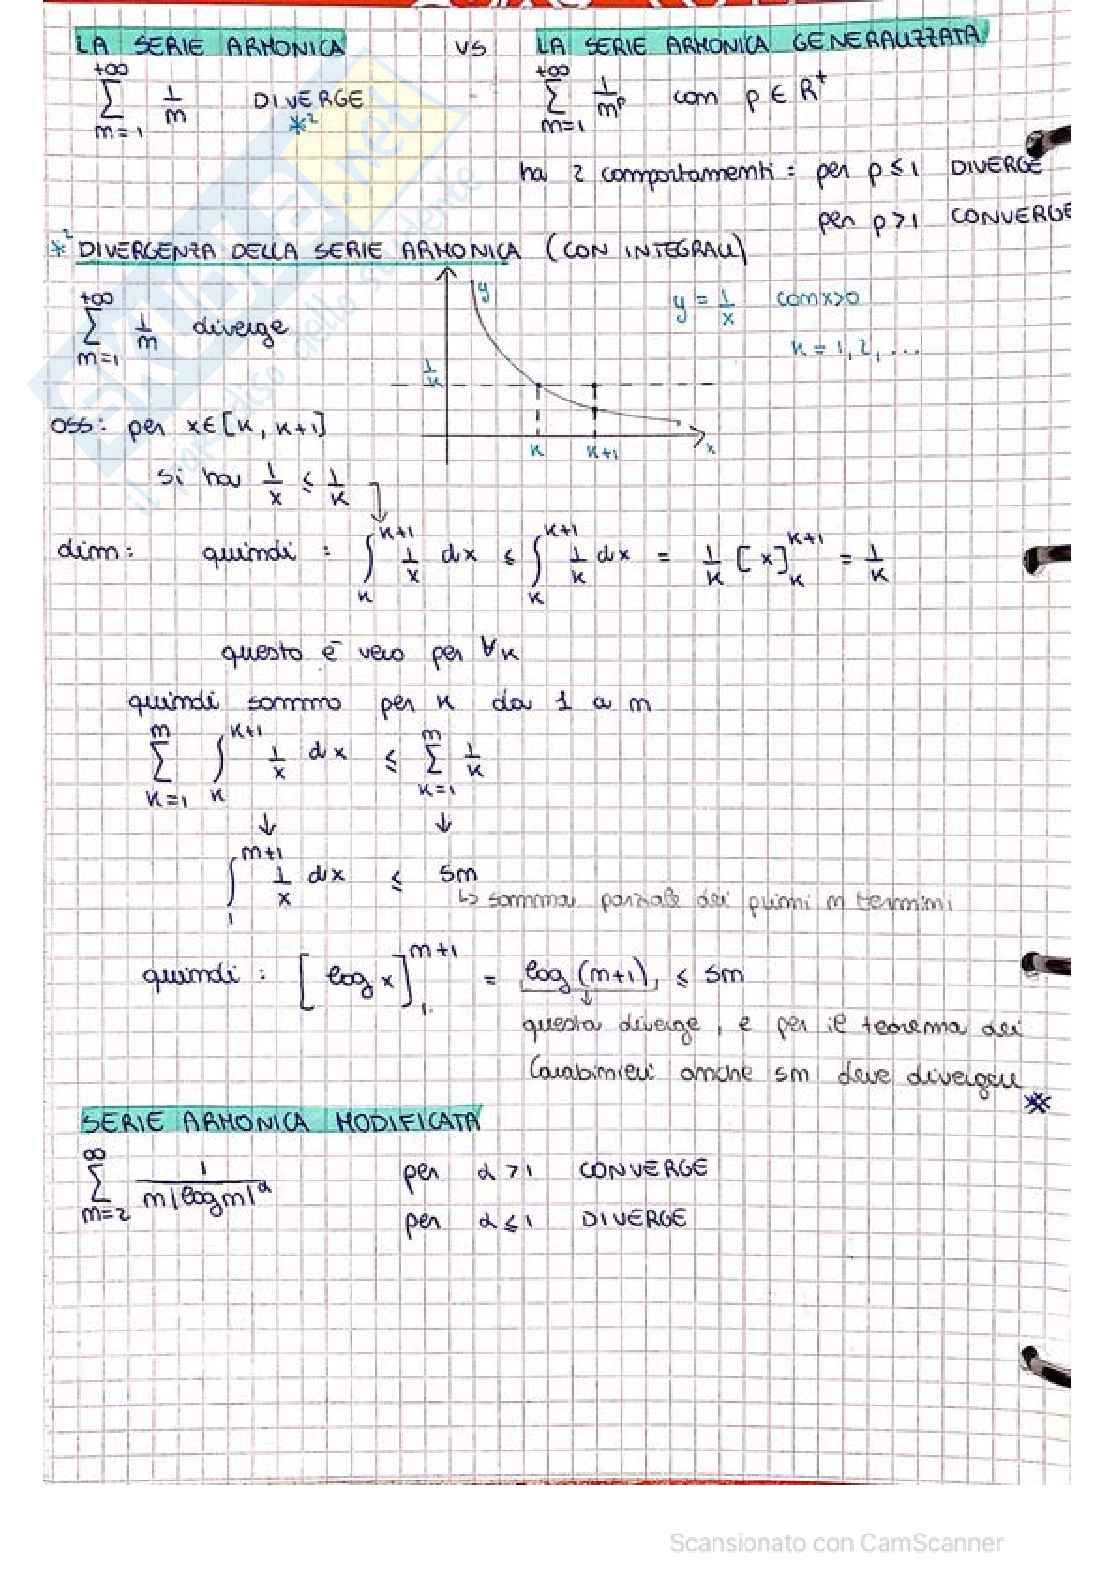 LA SERIE ARMONICA VS LA SERIE ARMONICA GENERALIZZATA
+∞ ∑ m=1 1/m DIVERGE *² +∞ ∑ m=1 1/m^p com p ∈ R⁺
ha 2 comportamenti = per p ≤ 1 DIVERGE
per p > 1 CONVERGE
*² DIVERGENZA DELLA SERIE ARMONICA (CON INTEGRALI)
+∞ ∑ m=1 1/m diverge
y
y = 1/x con x>0
K = 1, 2, ...
1/K
K K+1 x
OSS: per x∈[K, K+1]
si ha 1/x ≤ 1/K
dim: quindi : ∫_K^{K+1} 1/x dx ≤ ∫_K^{K+1} 1/K dx = 1/K [x]_K^{K+1} = 1/K
questo è vero per ∀K
quindi sommo per K da 1 a m
∑_{K=1}^{m} ∫_K^{K+1} 1/x dx ≤ ∑_{K=1}^{m} 1/K
↓ ↓
∫_1^{m+1} 1/x dx ≤ Sm
↳ somma parziale dei primi m termini
quindi : [log x]_1^{m+1} = log(m+1) ≤ Sm
↓
questa diverge, e per il teorema dei
Carabinieri anche sm deve divergere
**
SERIE ARMONICA MODIFICATA
∞ ∑ m=2 1/(m|logm|^α) per α > 1 CONVERGE
per α ≤ 1 DIVERGE
SKUOLA.net
il paradiso dello studente
Scansionato con CamScanner